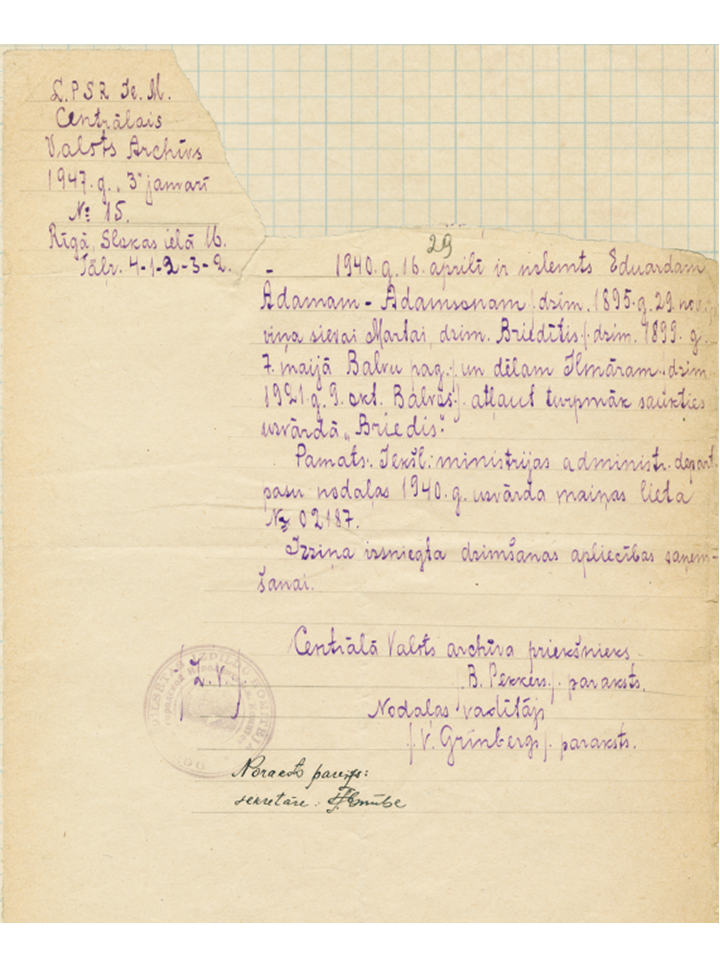 L.P.S.R. Ie. M.
Centrālais
Valsts Archīvs
1947. g. „3" janvarī
№ 15.
Rīgā, Slokas ielā 16.
Tālr. 4-1-2-3-2.
29
- 1940. g. 16. aprīlī ir nolemts Eduardam
Ādamam - Ādamsonam /dzim. 1895. g. 29. nov.
viņa sievai Martai, dzim. Briedītis /dzim. 1899. g.
7. maijā Balvu pag./ un dēlam Ilmāram /dzim.
1921. g. 9. okt. Balvos/. atļaut turpmāk saukties
uzvārdā „Briedis".
Pamats: Iekšl. ministrijas administr. depart.
pasu nodaļas 1940. g. uzvārda maiņas lieta
№ 02187.
Izziņa izsniegta dzimšanas apliecības saņem-
šanai.
Centrālā Valsts archīva priekšnieks
/B. Pekkers/. paraksts.
Nodaļas vadītājs
/V. Grīnbergs/. paraksts.
/Z.V./
PILSĒTAS IZPILDU KOMITEJA
Noraksts pareizs:
sekretāre: